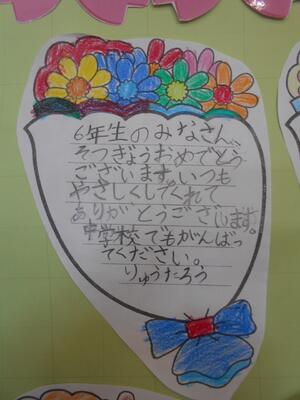 6年生のみなさん、
そつぎょうおめでとう
ございます。いつも
やさしくしてくれて
ありがとうございます。
中学校でもがんばっ
てください。
りゅうたろう